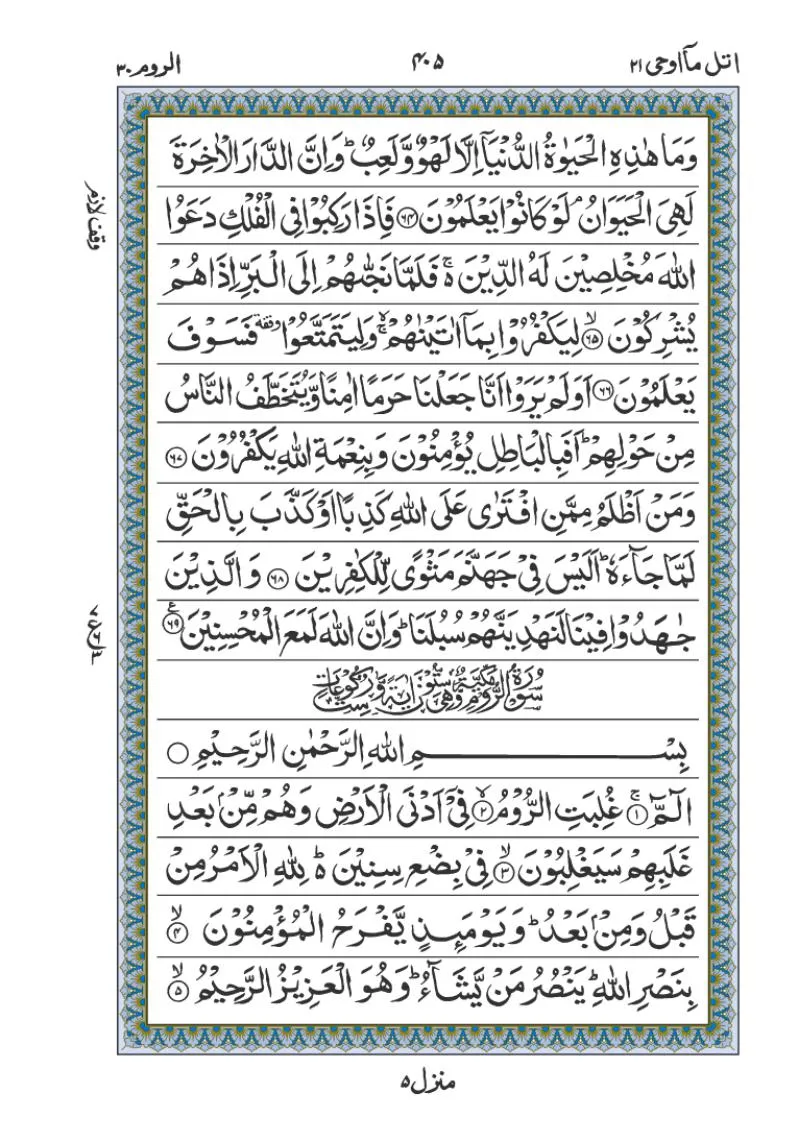 اتل ما اوحی ۲۱
۴۰۵
الروم ۳۰
وَمَا هٰذِهِ الْحَيٰوةُ الدُّنْيَاۤ اِلَّا لَهْوٌ وَّلَعِبٌ ؕ وَاِنَّ الدَّارَ الْاٰخِرَةَ
لَهِىَ الْحَيَوَانُ ۘ لَوْ كَانُوْا يَعْلَمُوْنَ ﴿۶۴﴾ فَاِذَا رَكِبُوْا فِى الْفُلْكِ دَعَوُا
وقف لازم
اللّٰهَ مُخْلِصِيْنَ لَهُ الدِّيْنَ ۚ۬ فَلَمَّا نَجّٰٮهُمْ اِلَى الْبَرِّ اِذَا هُمْ
يُشْرِكُوْنَ ۙ﴿۶۵﴾ لِيَكْفُرُوْا بِمَاۤ اٰتَيْنٰهُمْ ۚۙ وَلِيَتَمَتَّعُوْا وقفة فَسَوْفَ
يَعْلَمُوْنَ ﴿۶۶﴾ اَوَلَمْ يَرَوْا اَنَّا جَعَلْنَا حَرَمًا اٰمِنًا وَّيُتَخَطَّفُ النَّاسُ
مِنْ حَوْلِهِمْ ؕ اَفَبِالْبَاطِلِ يُؤْمِنُوْنَ وَبِنِعْمَةِ اللّٰهِ يَكْفُرُوْنَ ﴿۶۷﴾
وَمَنْ اَظْلَمُ مِمَّنِ افْتَرٰى عَلَى اللّٰهِ كَذِبًا اَوْ كَذَّبَ بِالْحَقِّ
لَمَّا جَآءَهٗ ؕ اَلَيْسَ فِىْ جَهَنَّمَ مَثْوًى لِّلْكٰفِرِيْنَ ﴿۶۸﴾ وَالَّذِيْنَ
جٰهَدُوْا فِيْنَا لَنَهْدِيَنَّهُمْ سُبُلَنَا ؕ وَاِنَّ اللّٰهَ لَمَعَ الْمُحْسِنِيْنَ ﴿۶۹﴾ ع
سُوْرَةُ الرُّوْمِ مَكِّيَّةٌ وَّهِىَ سِتُّوْنَ اٰيَةً وَّسِتُّ رُكُوْعَاتٍ
بِسْمِ اللّٰهِ الرَّحْمٰنِ الرَّحِيْمِ ○
الٓمّٓ ۚ﴿۱﴾ غُلِبَتِ الرُّوْمُ ۙ﴿۲﴾ فِىْۤ اَدْنَى الْاَرْضِ وَهُمْ مِّنْۢ بَعْدِ
غَلَبِهِمْ سَيَغْلِبُوْنَ ۙ﴿۳﴾ فِىْ بِضْعِ سِنِيْنَ ۬ؕ لِلّٰهِ الْاَمْرُ مِنْ
قَبْلُ وَمِنْۢ بَعْدُ ؕ وَيَوْمَئِذٍ يَّفْرَحُ الْمُؤْمِنُوْنَ ۙ﴿۴﴾
بِنَصْرِ اللّٰهِ ؕ يَنْصُرُ مَنْ يَّشَآءُ ؕ وَهُوَ الْعَزِيْزُ الرَّحِيْمُ ۙ﴿۵﴾
منزل ۵